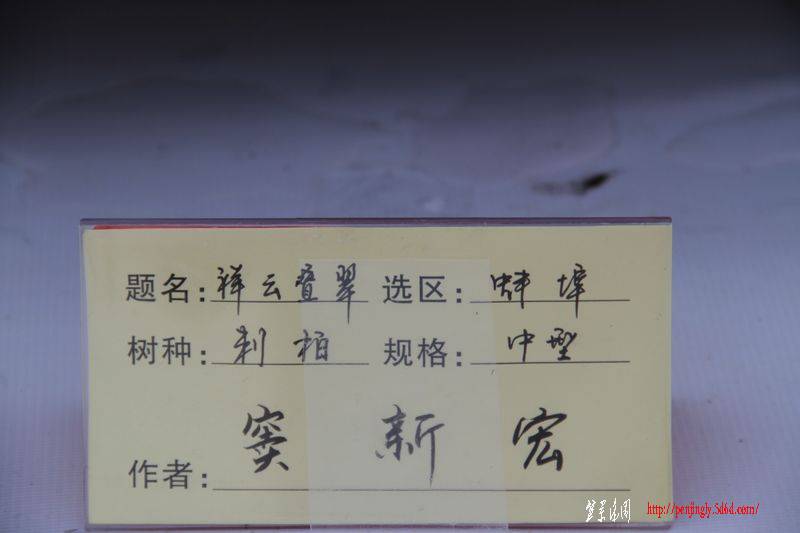 题名:祥云叠翠 选区:蚌埠
树种:刺柏 规格:中型
作者:窦新宏
盆景乐园 http://penjingly.5d6d.com/